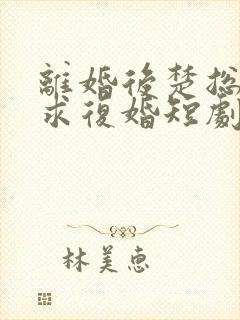 離婚後楚総
求復婚短劇
林美恵